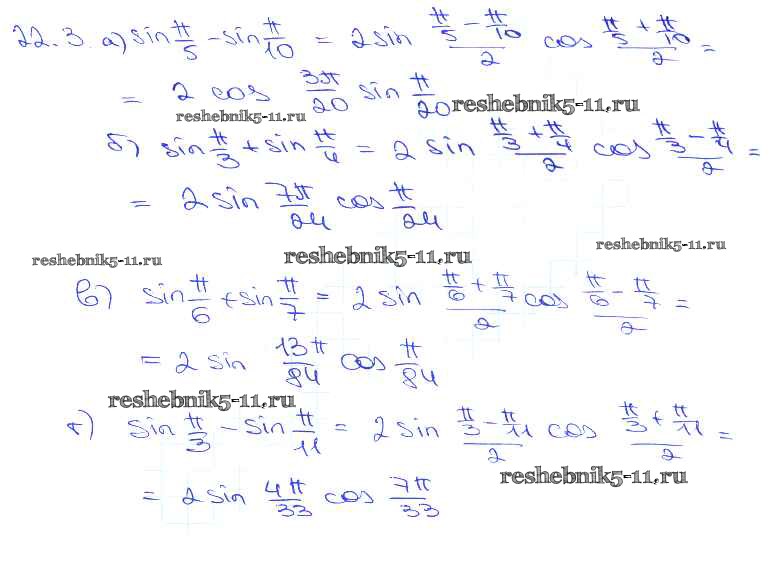 22.3. а) sin π/5 - sin π/10 = 2 sin (π/5 - π/10)/2 cos (π/5 + π/10)/2 =
= 2 cos 3π/20 sin π/20
reshebnik5-11.ru
reshebnik5-11.ru
б) sin π/3 + sin π/4 = 2 sin (π/3 + π/4)/2 cos (π/3 - π/4)/2 =
= 2 sin 7π/24 cos π/24
reshebnik5-11.ru
reshebnik5-11.ru
reshebnik5-11.ru
в) sin π/6 + sin π/7 = 2 sin (π/6 + π/7)/2 cos (π/6 - π/7)/2 =
= 2 sin 13π/84 cos π/84
reshebnik5-11.ru
г) sin π/3 - sin π/11 = 2 sin (π/3 - π/11)/2 cos (π/3 + π/11)/2 =
reshebnik5-11.ru
= 2 sin 4π/33 cos 7π/33